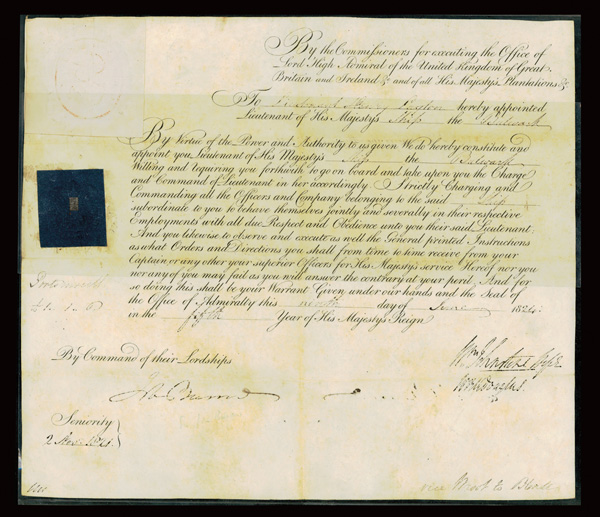 By the Commissioners for executing the Office of
Lord High Admiral of the United Kingdom of Great
Britain and Ireland &c. and of all His Majesty's Plantations &c.
To Henry hereby appointed
Lieutenant of His Majesty's Ship the Bulwark
By Virtue of the Power and Authority to us given We do hereby constitute and
appoint you Lieutenant of His Majesty's Ship the Bulwark
Willing and requiring you forthwith to go on board and take upon you the Charge
and Command of Lieutenant in her accordingly. Strictly Charging and
Commanding all the Officers and Company belonging to the said Ship
subordinate to you to behave themselves jointly and severally in their respective
Employments with all due Respect and Obedience unto you their said Lieutenant
And you likewise to observe and execute as well the General printed Instructions
as what Orders and Directions you shall from time to time receive from your
Captain or any other your superior Officers for His Majesty's service Hereof nor you
nor any of you may fail as you will answer the contrary at your peril And for
so doing this shall be your Warrant Given under our hands and the Seal of
the Office of Admiralty this ninth day of June 1824
in the fifth Year of His Majesty's Reign
By Command of their Lordships
Seniority